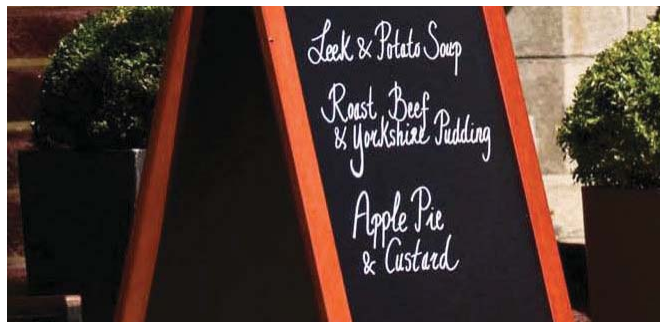 Leek & Potato Soup
Roast Beef
& Yorkshire Pudding
Apple Pie
& Custard